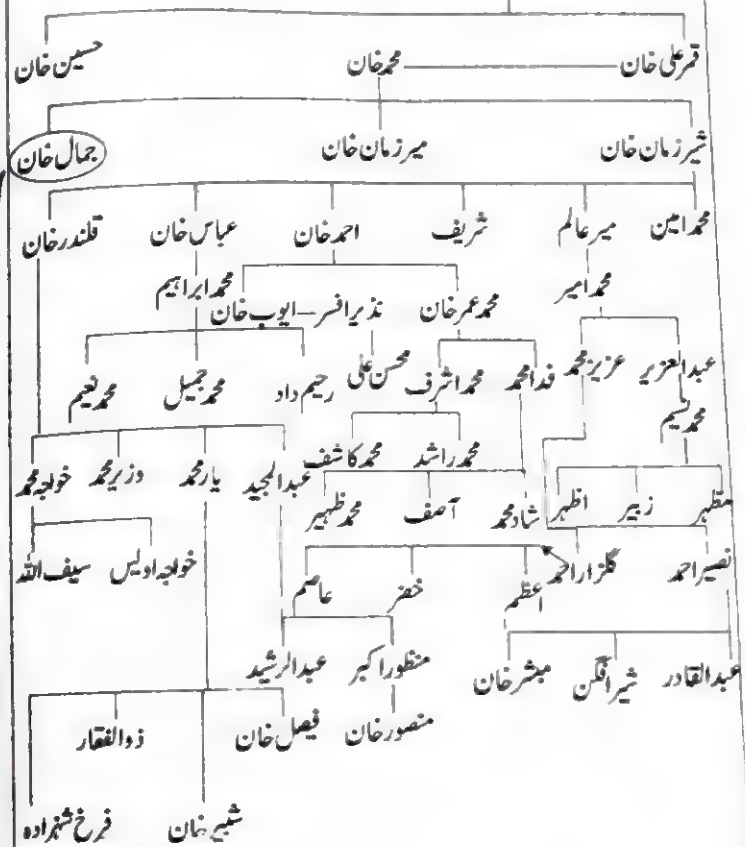 قمر علی خان محمد خان حسین خان
شیر زمان خان میر زمان خان جمال خان
محمد امین میر عالم شریف احمد خان عباس خان قلندر خان
محمد امیر محمد عمر خان نذیر افسر ایوب خان محمد ابراہیم
عبدالعزیز عزیز محمد فدا محمد محمد اشرف محسن علی رحیم داد محمد جمیل محمد نعیم
محمد نسیم
محمد راشد محمد کاشف عبدالمجید یار محمد وزیر محمد خواجہ محمد
مظہر زبیر اظہر شاد محمد آصف محمد ظہیر
نصیر احمد گلزار احمد اعظم خضر عاصم خواجہ اویس سیف اللہ
عبدالقادر شیر افگن مبشر خان منظور اکبر عبدالرشید
منصور خان فیصل خان ذوالفقار
شبیر خان فرخ شہزادہ